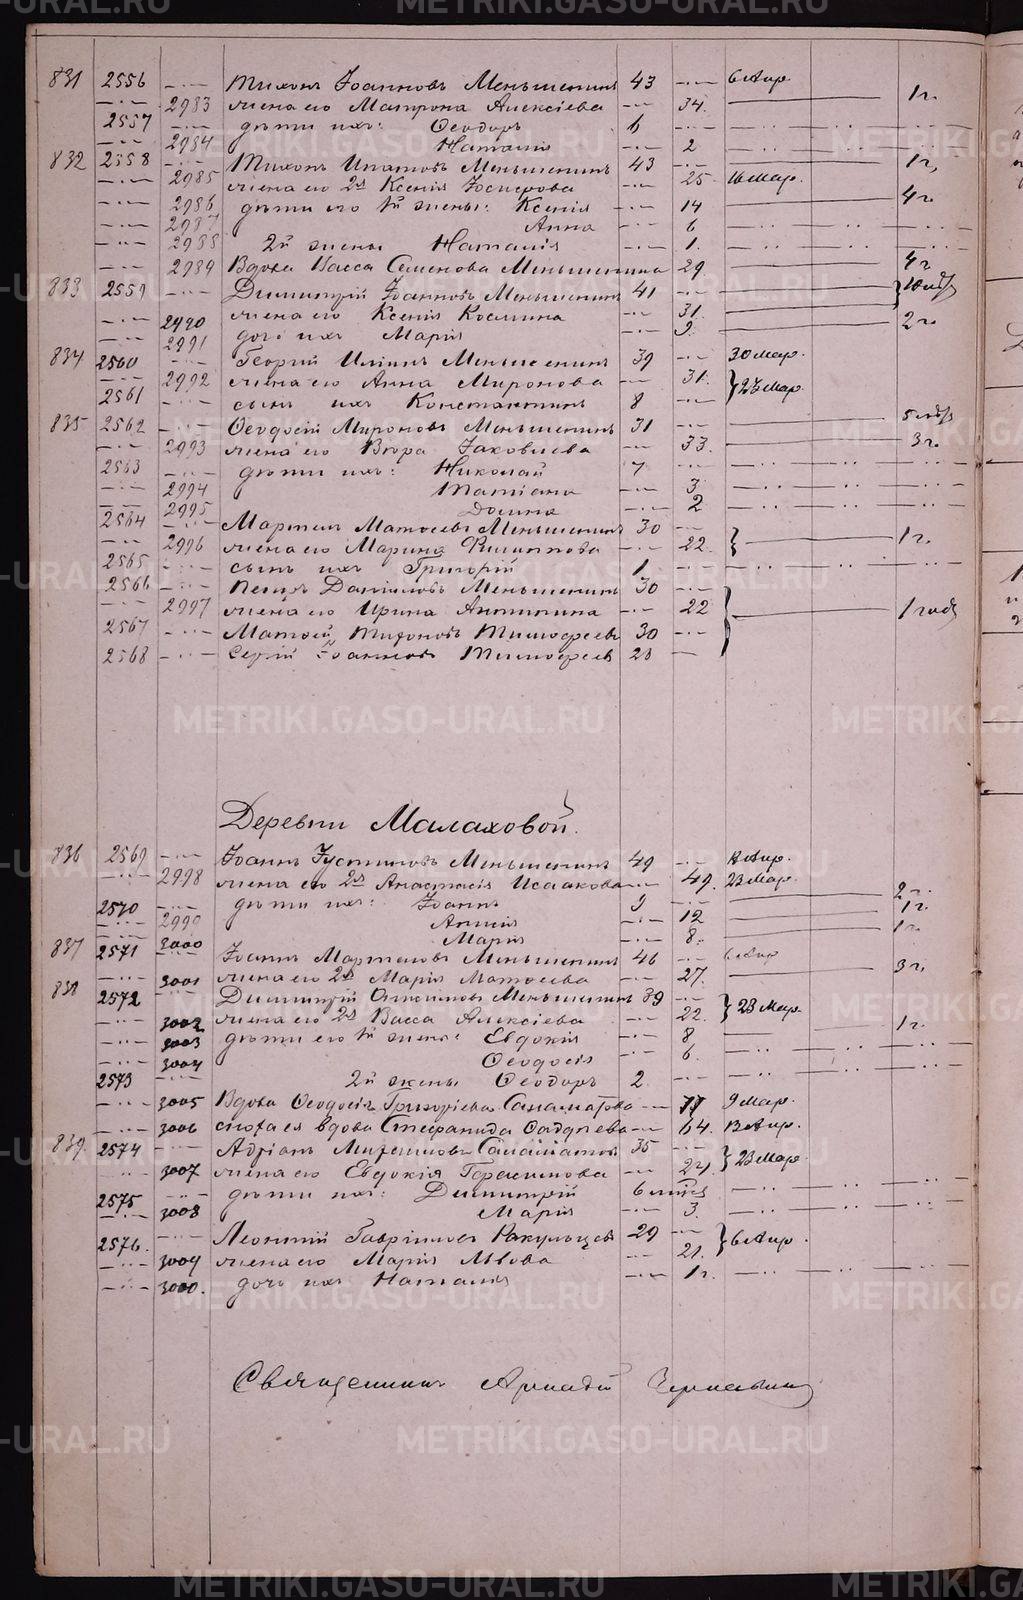 831 2556 -·- Тихонъ Іоанновъ Меньшенинъ 43 -·- 6 Апр.
-·- 2983 жена его Матрона Алексіева -·- 34. 1 г.
2557 -·- дѣти ихъ: Ѳеодоръ 6 -·-
-·- 2984 Наталія -·- 2
832 2558 -·- Тихонъ Ипатовъ Меньшенинъ 43 -·- 16 Мар. 1 г.
-·- 2985 жена его 2я Ксенія -·- 25
-·- 2986 дѣти его 1й жены: Ксенія -·- 14 4 г.
-·- 2987 Анна -·- 6
-·- 2988 2й жены Наталія -·- 1.
2989 Вдова Васса Семенова Меньшенина -·- 29. 4 г
833 2559 -·- Димитрій Іоанновъ Меньшенинъ 41 -·-
-·- 2990 жена его Ксенія Космина -·- 31. 2 г.
-·- 2991 дочь ихъ Марія -·- 9
834 2560 -·- Георгій Илiинъ Меньшенинъ 39 -·- 30 мар.
-·- 2992 жена его Анна Миронова -·- 31. 23 Мар.
2561 -·- сынъ ихъ Константинъ 8 -·-
835 2562 -·- Ѳеодосій Мироновъ Меньшенинъ 31 -·-
-·- 2993 жена его Вѣра Іаковлева -·- 33. 3 г.
2563 -·- дѣти ихъ: Николай 7 -·-
-·- 2994 Татіана -·- 3
-·- 2995 Домна -·- 2
2564 -·- Матѳеевъ Меньшенинъ 30 -·- 1 г.
-·- 2996 жена его Марина Филиппова -·- 22.
2565 -·- сынъ ихъ Григорій 1 -·-
2566 -·- Петръ Даніиловъ Меньшенинъ 30 -·-
-·- 2997 жена его Ирина Антипина -·- 22 1 годъ
2567 -·- Матѳей Тихоновъ Тимоѳеевъ 30 -·-
2568 -·- Сергій Іоанновъ Тимоѳеевъ 23 —
Деревни Малаховой.
836 2569 -·- Іоаннъ Іустиновъ Меньшенинъ 49 -·- Апр.
-·- 2998 жена его 2я Анастасія Исаакова -·- 49. 23 Мар.
2570 -·- дѣти ихъ: Іоаннъ 9 -·- 2 г.
-·- 2999 Аннія -·- 12 1 г.
-·- 3000 Марія -·- 8. 1 г.
837 2571 -·- Іоаннъ Меньшенинъ 46 -·- 6 Апр
-·- 3001 жена его 2я Марія Матѳеева -·- 27. 3 г.
838 2572 -·- Димитрій Меньшенинъ 39 -·- 23 Мар.
-·- 3002 жена его 2я Васса Алексіева -·- 22.
-·- 3003 дѣти его 1й жены: Евдокія -·- 8 1 г.
-·- 3004 Ѳеодосія -·- 6.
2573 -·- 2й жены Ѳеодоръ 2 -·-
-·- 3005 Вдова Ѳеодосія Григоріева -·- 77 9 мар.
-·- 3006 сноха ея вдова Стефанида Ѳаддѣева -·- 64. 13 Апр.
839 2574 -·- Адріанъ 35 -·- 23 Мар.
-·- 3007 жена его Евдокія Герасимова -·- 24
2575 -·- дѣти ихъ: Димитрій 6 мѣс. -·-
-·- 3008 Марія -·- 3.
2576. -·- Леонтій Гавріиловъ Ракульцевъ 29 -·- 6 Апр.
-·- 3009 жена его Марія Львова -·- 21.
-·- 3000. дочь ихъ Наталія -·- 1 г.
Священникъ Аркадій